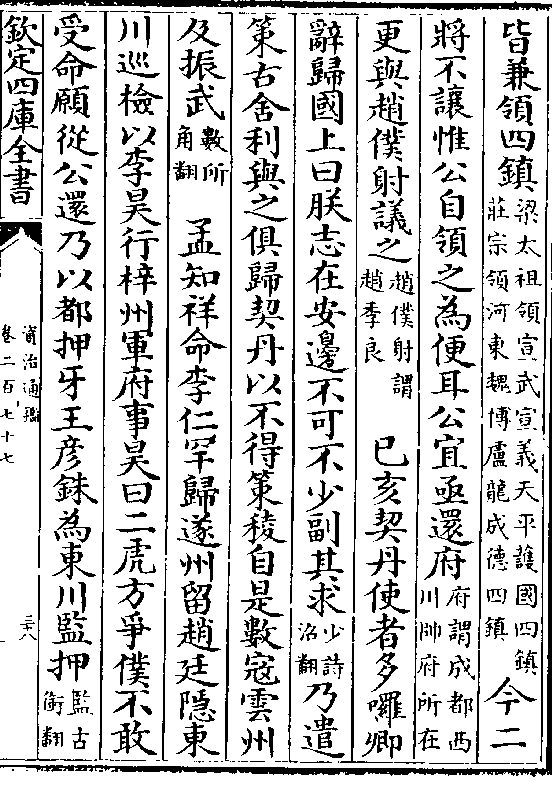 皆兼領四鎮梁太祖領宣武宣義天平護國四鎮莊宗領河東魏博盧龍成德四鎮今二
將不讓惟公自領之為便耳公宜亟還府府謂成都西川帥府所在
更與趙僕射議之趙僕射謂趙季良 己亥契丹使者多囉卿
辭歸國上曰朕志在安邊不可不少副其求少詩沼翻乃遣
策古舍利與之俱歸契丹以不得策稜自是數寇雲州
及振武數所角翻 孟知祥命李仁罕歸遂州留趙廷隱東
川巡檢以李昊行梓州軍府事昊曰二虎方爭僕不敢
受命願從公還乃以都押牙王彥銖為東川監押監古銜翻
欽定四庫全書
資治通鑑
卷二百七十七
三八